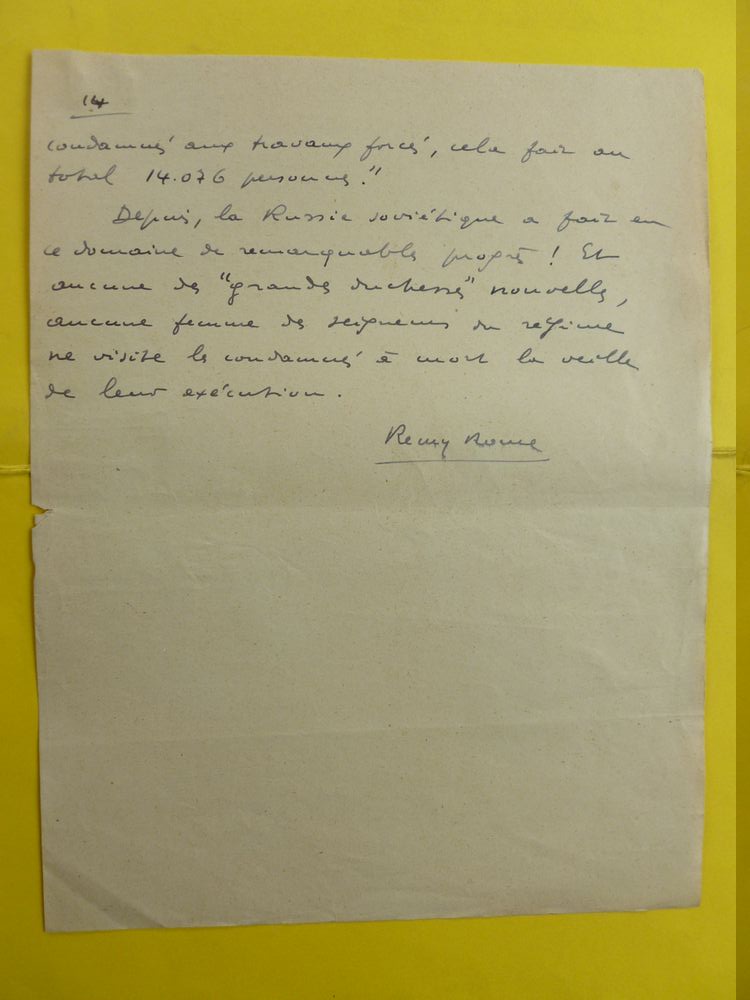 14
condamnés aux travaux forcés, cela fait au
total 14.076 personnes."
Depuis, la Russie soviétique a fait en
ce domaine de remarquables progrès ! Et
aucune des "grandes duchesses" nouvelles,
aucune femme des seigneurs du régime
ne visite les condamnés à mort la veille
de leur exécution.
Remy Roure